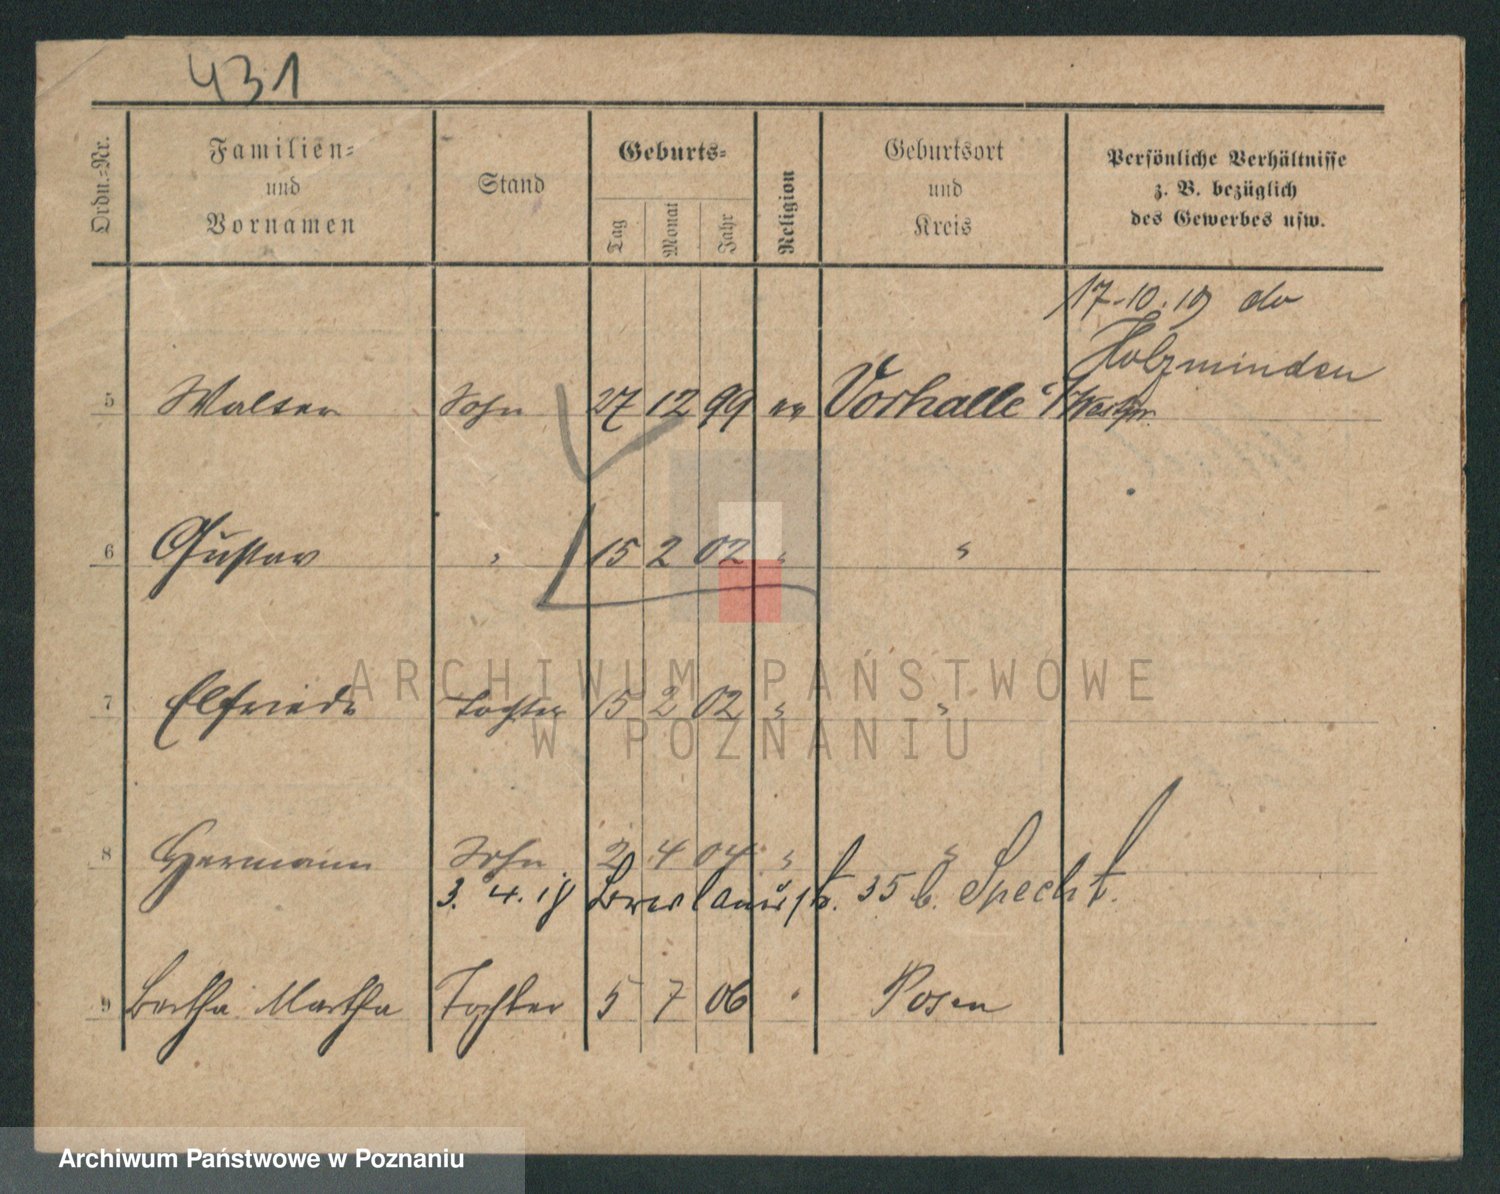 431
Ordn.-Nr.
Familien-
und
Vornamen
Stand
Geburts-
Tag
Monat
Jahr
Religion
Geburtsort
und
Kreis
Persönliche Verhältnisse
z. B. bezüglich
des Gewerbes usw.
17.10.19
Holzminden
5 Walter Sohn 27 12 99 ev Vorhalle
6 Gustav " 15 2 02 " "
7 Elfriede Tochter 15 2 02 " "
8 Hermann Sohn 2 4 04 " "
3. 4. 18 Breslauerstr. 35 b. Specht.
9 Bertha Martha Tochter 5 7 06 " Posen
ARCHIWUM PAŃSTWOWE
W POZNANIU
Archiwum Państwowe w Poznaniu